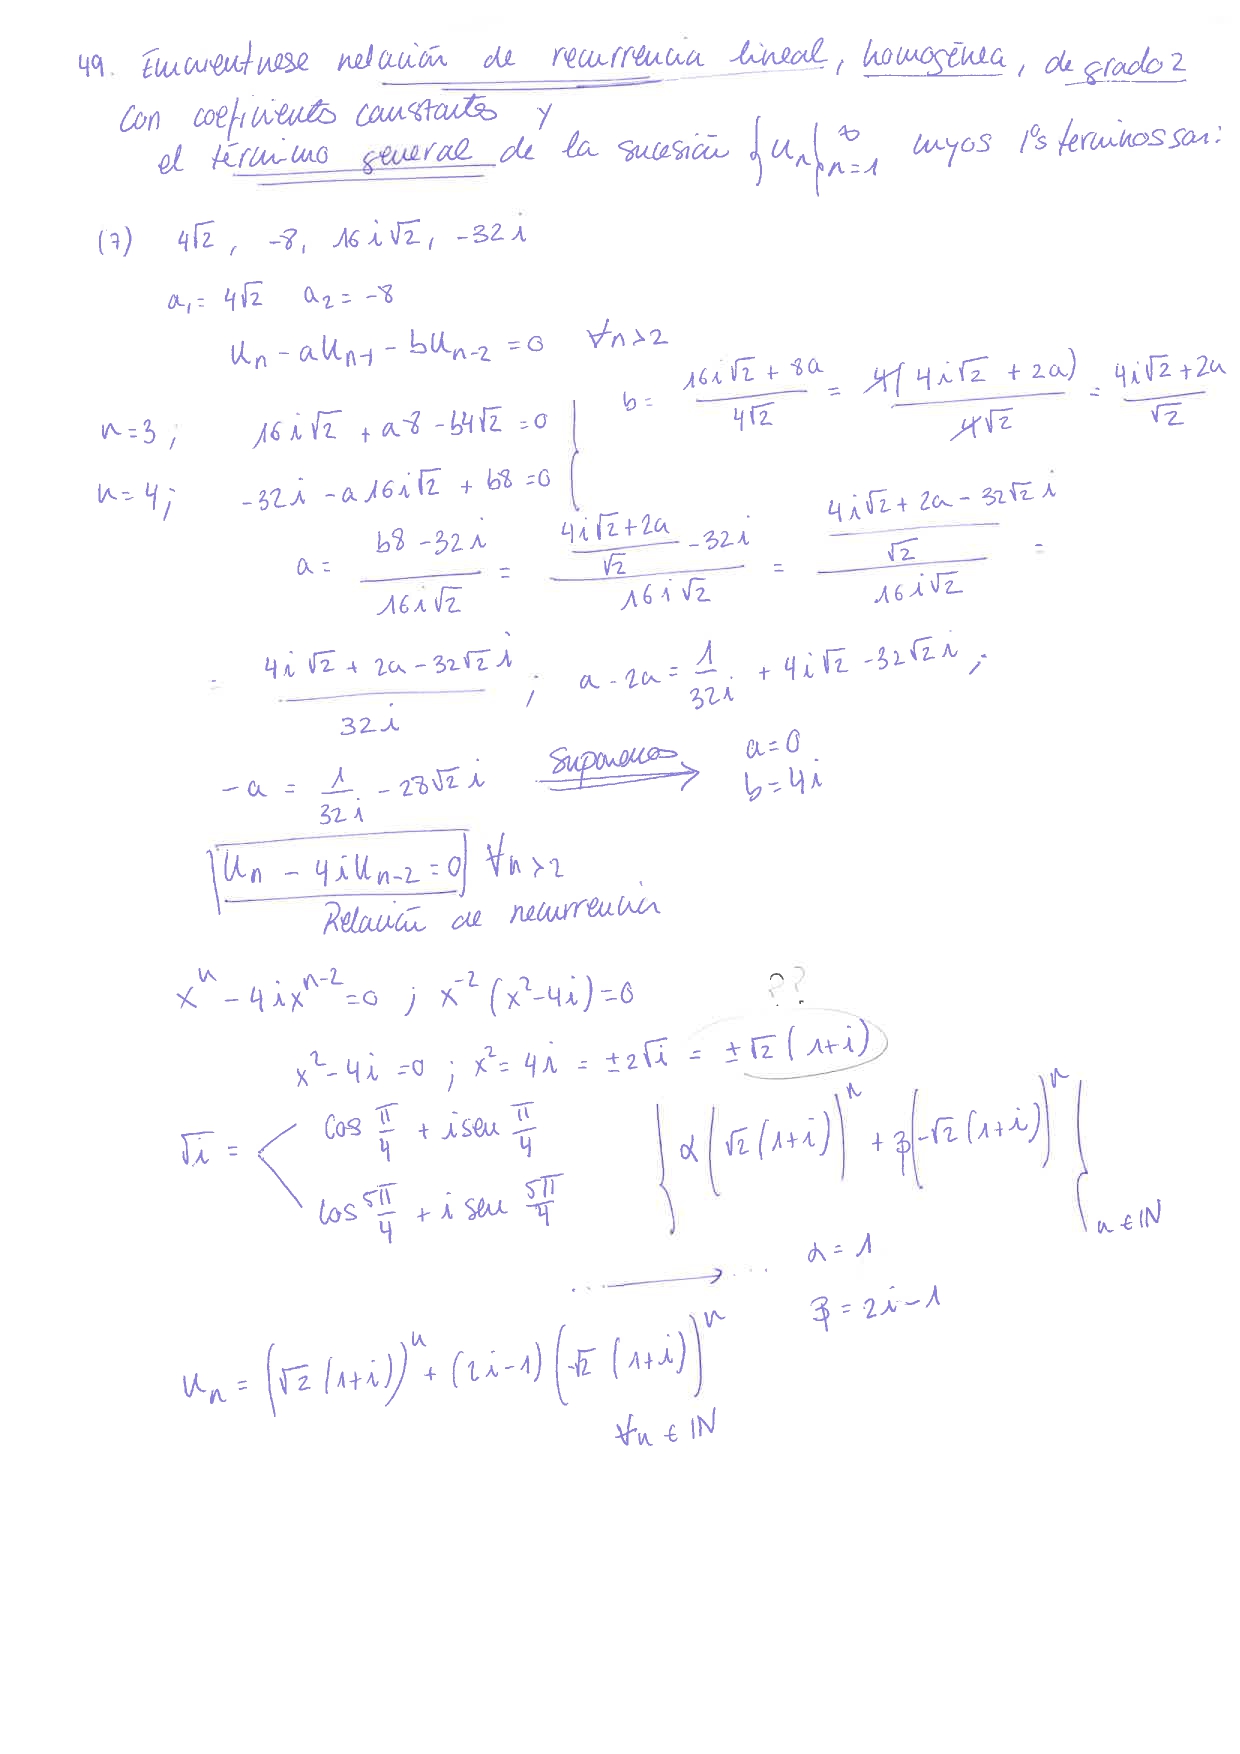 49. Encuentrese relación de recurrencia lineal, homogénea, de grado 2
con coeficientes constantes y
el término general de la sucesión {u_n}_{n=1}^∞ cuyos 1ºs terminos son:
(7) 4√2, -8, 16i√2, -32i
a₁ = 4√2 a₂ = -8
u_n - au_{n-1} - bu_{n-2} = 0 ∀n>2
b = (16i√2 + 8a)/(4√2) = 4(4i√2 + 2a)/(4√2) = (4i√2 + 2a)/√2
n=3; 16i√2 + a8 - b4√2 = 0
n=4; -32i - a16i√2 + b8 = 0
a = (b8 - 32i)/(16i√2) = ((4i√2 + 2a)/√2 - 32i)/(16i√2) = ((4i√2 + 2a - 32√2i)/√2)/(16i√2) =
= (4i√2 + 2a - 32√2i)/(32i) ; a - 2a = 1/(32i) + 4i√2 - 32√2i ;
-a = 1/(32i) - 28√2i Suponemos → a = 0
b = 4i
u_n - 4iu_{n-2} = 0 ∀n>2
Relación de recurrencia
x^n - 4ix^{n-2} = 0 ; x^{-2}(x² - 4i) = 0 ??
x² - 4i = 0 ; x² = 4i = ±2√i = ±√2(1+i)
√i = < cos π/4 + i sen π/4
cos 5π/4 + i sen 5π/4
{α(√2(1+i))^n + β(-√2(1+i))^n}_{n∈ℕ}
...→... α = 1
β = 2i-1
u_n = (√2(1+i))^n + (2i-1)(-√2(1+i))^n
∀n ∈ ℕ